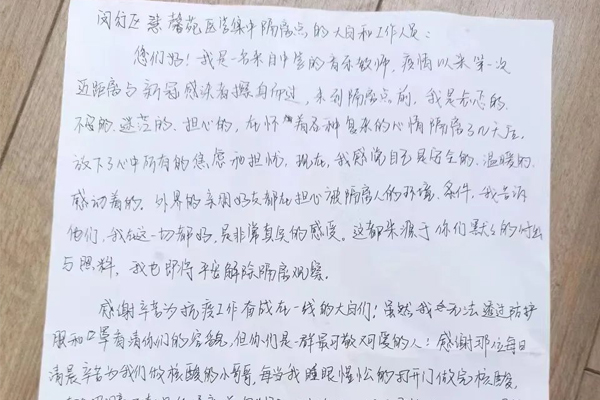 闵行区慧馨苑区管集中隔离点的大白和工作人员：
您们好！我是一名来自中学的音乐教师，疫情以来第一次
近距离与新冠感染者擦肩而过，来到隔离点前，我是忐忑的、
不安的、迷茫的、担心的，在怀着各种复杂的心情隔离了几天后，
放下了心中所有的焦虑和担忧，现在，我感觉自己是安全的、温暖的、
感动着的。外界的亲朋好友都在担心被隔离人的环境、条件，我告诉
他们，我在这一切都好，是非常真实的感受。这都来源于你们默默的付出
与照料，我也即将平安解除隔离观察。
感谢辛苦为抗疫工作奋战在一线的大白们！虽然我无法透过防护
服和口罩看清你们的容貌，但你们是一群最可敬可爱的人！感谢那位每日
清晨辛苦为我们做核酸的小哥哥，每当我睡眼惺忪的打开门做完核酸，